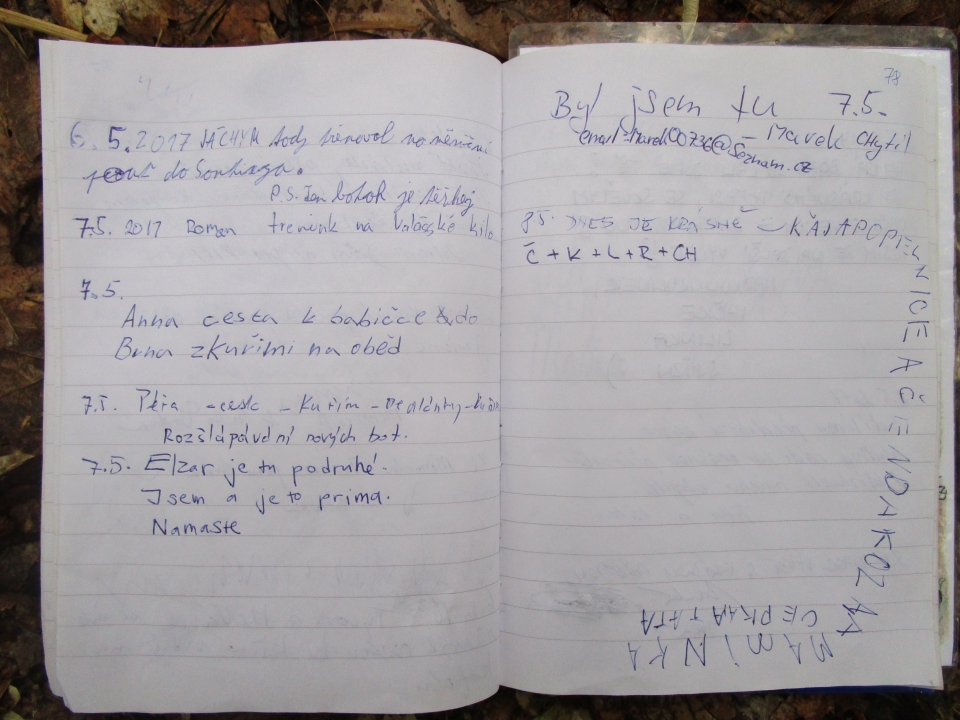 6. 5. 2017 JÁCHYM tady trénoval na
pouť do Santiaga.
P.S. Jen batoh je těžkej
7.5. 2017 Roman trenink na Valašské kilo
7.5.
Anna cesta k babičce do
Brna z Kuřimi na oběd
7.5. Petra - cesta - Kuřim -
Rozšlapávání nových bot.
7.5. Elzar je tu podruhé.
Jsem a je to prima.
Namaste
78
Byl jsem tu 7.5.
- Marek Chytil
email: Marek00736@Seznam.cz
8.5. DNES JE KRÁSNĚ KÁJA
Č + K + L + R + CH
MAMINKA
TATA